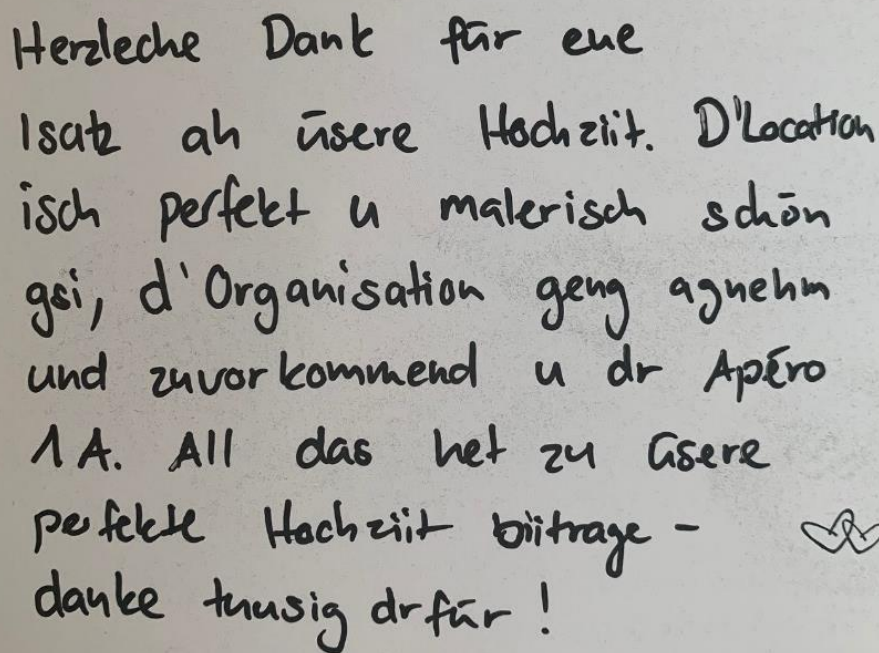 Herzleche Dank für eue
Isatz ah üsere Hochziit. D'Location
isch perfekt u malerisch schön
gsi, d'Organisation geng agnehm
und zuvorkommend u dr Apéro
1A. All das het zu üsere
perfekte Hochziit biitrage -
danke tuusig drfür!